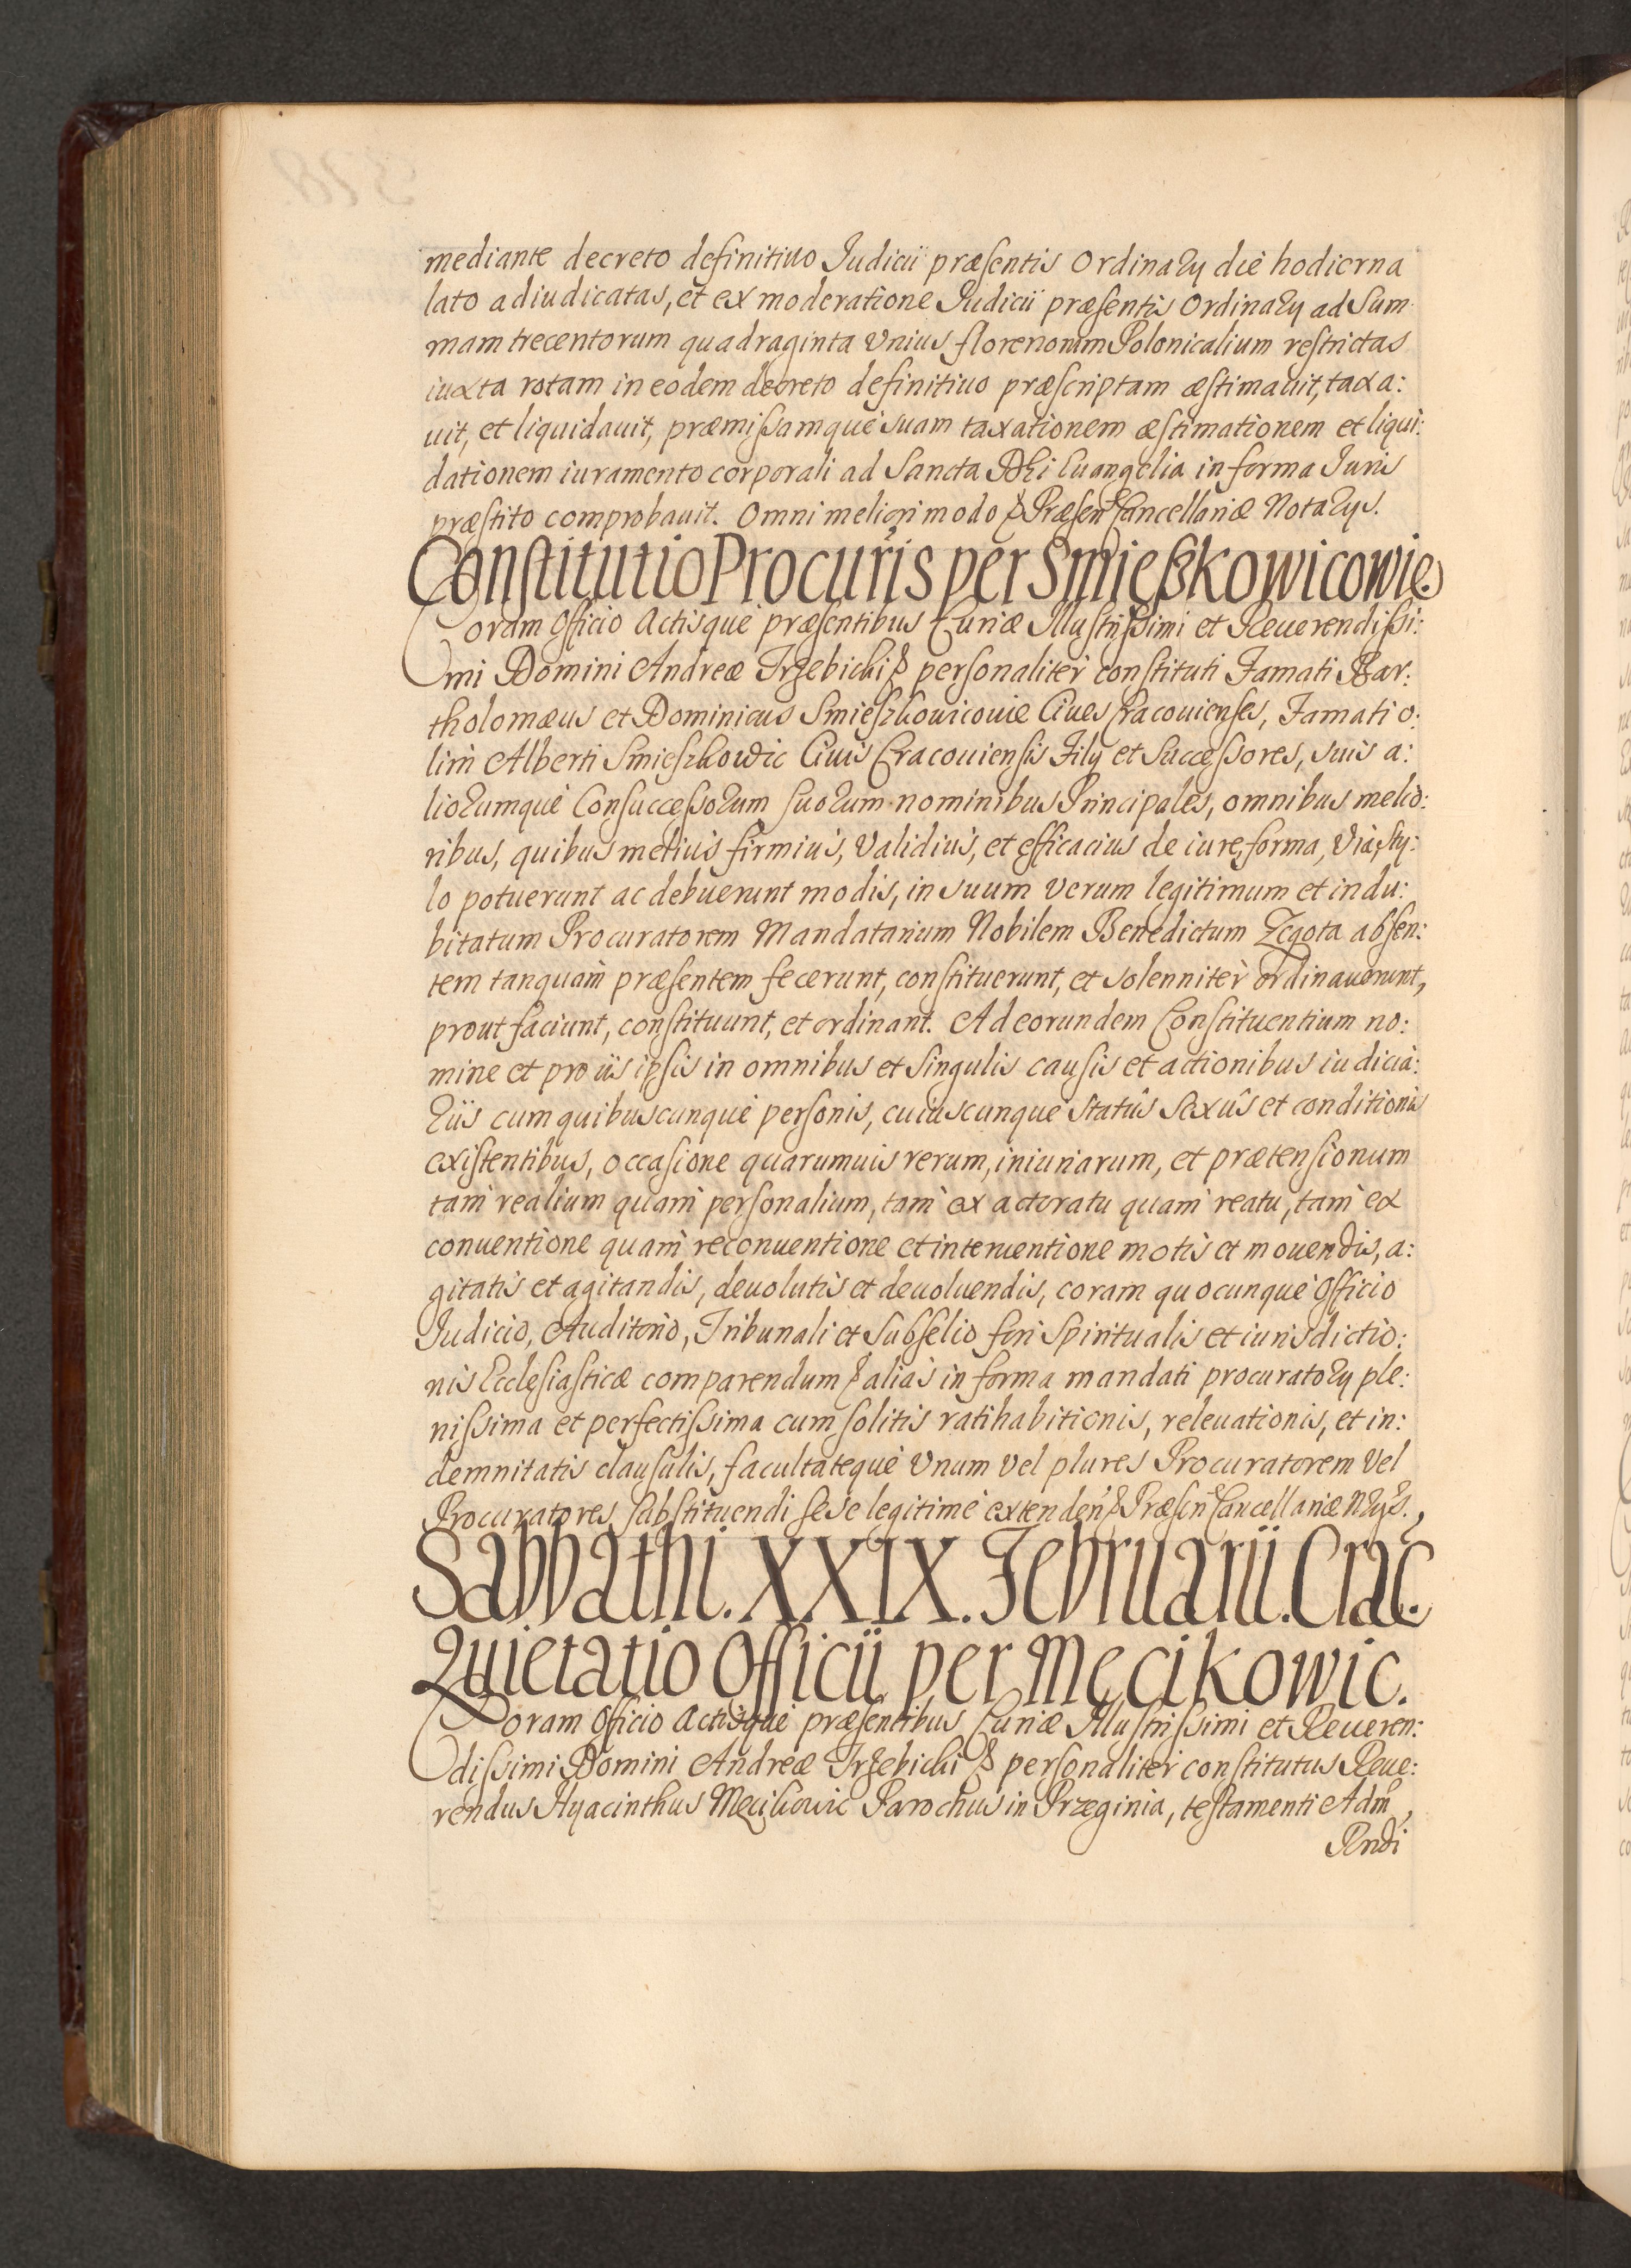 mediante decreto definitiuo Judicii præsentis Ordinarÿ die hodierna
lato adiudicatas, et ex moderatione Judicii præsentis Ordinarÿ ad Sum
mam trecentorum quadraginta Vnius florenorum Polonicalium restrictas
iuxta rotam in eodem decreto definitiuo præscriptam æstimauit, taxa:
uit, et liquidauit, præmissamquè suam taxationem æstimationem et liqui:
dationem iuramento corporali ad Sancta Dei Euangelia in forma Juris
præstito comprobauit. Omni meliori modo & Præsen: Cancellariæ Notarys.
Constitutio Procuris per Smieszkowicowie
Coram Officio Actisquè præsentibus Curiæ Illustrissimi et Reuerendissi:
mi Domini Andreæ Trzebicki & personalitèr constituti Famati Bar:
tholomæus et Dominicus Smieszkowicowie Ciues Cracouienses, Famati o:
lim Alberti Smieszkowic Ciuis Cracouiensis Filÿ et Successores, suis a:
liorumquè Consuccessorum suorum nominibus Principales, omnibus melio:
ribus, quibus meliùs firmiùs, Validiùs, et efficaciùs de iure, forma, Via, sty:
lo potuerunt ac debuerunt modis, in suum Verum legitimum et indu:
bitatum Procuratorem Mandatarium Nobilem Benedictum Zegota absen:
tem tanquàm præsentem fecerunt, constituerunt, et solennitèr ordinauerunt,
prout faciunt, constituunt, et ordinant. Ad eorundem Constituentium no:
mine et pro iis ipsis in omnibus et Singulis causis et actionibus iudicia:
riis cum quibuscunquè personis, cuiuscunquè Statûs Sexûs et conditionis
existentibus, occasione quarumuis rerum, iniuriarum, et prætensionum
tàm realium quàm personalium, tàm ex actoratu quàm reatu, tàm ex
conuentione quàm reconuentione et interuentione motis et mouendis, a:
gitatis et agitandis, deuolutis et deuoluendis, coram quocunquè Officio
Judicio, Auditorio, Tribunali et Subselio fori Spiritualis et iurisdictio:
nis Ecclesiasticæ comparendum & aliàs in forma mandati procuratorÿ ple:
nissima et perfectissima cum solitis ratihabitionis, releuationis, et in:
demnitatis clausulis, facultatequè Vnum Vel plures Procuratorem Vel
Procuratores substituendi sese legitimè extenden: & Præsen: Cancellariæ Nrÿs.
Sabbathi. XXIX. Februarii. Crac.
Quietatio Officii per Mecikowic.
Coram Officio Actisquè præsentibus Curiæ Illustrissimi et Reueren:
dissimi Domini Andreæ Trzebicki & personalitèr constitutus Reue:
rendus Hyacinthus Mecikowic Parochus in Przeginia, testamenti Adm
Rndi